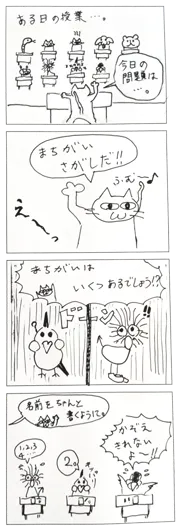 ある日の授業…。
今日の
問題は
…。
まちがい
さがしだ!!
ふむ〜♪
え〜っ
まちがいは
いくつあるでしょう!?
ドーン
名前をちゃんと
書くように。
1.2.3
4…
2。
かぞえ
きれない
よ〜!!